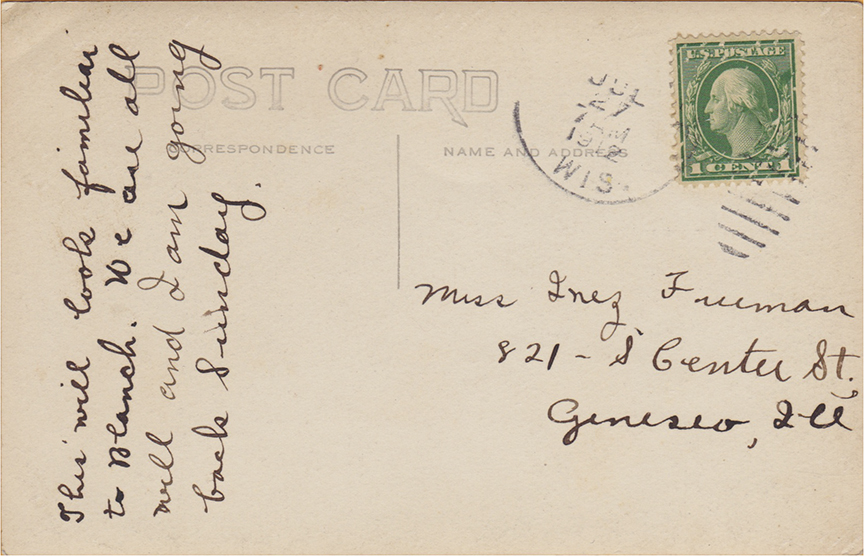 This will look familiar
to Blanch. We are all
well and I am going
back Sunday.
POST CARD
CORRESPONDENCE
NAME AND ADDRESS
JUL
27
7 AM
1912
WIS.
U.S. POSTAGE
1 CENT 1
Miss Inez Freeman
821 - S Center St.,
Geneseo, Ill